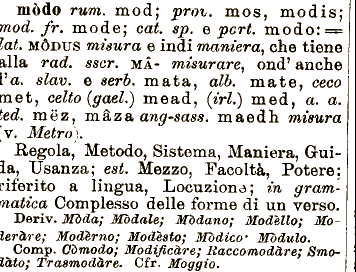 mòdo rum. mod; prov. mos, modis;
mod. fr. mode; cat. sp. e port. modo: =
lat. MÒDUS misura e indi maniera, che tiene
alla rad. sscr. MÂ- misurare, ond' anche
l'a. slav. e serb. mata, alb. mate, ceco
met, celto (gael.) mead, (irl.) med, a. a.
ted. mëz, mâza ang-sass. maedh misura
(v. Metro).
Regola, Metodo, Sistema, Maniera, Gui-
da, Usanza; est. Mezzo, Facoltà, Potere;
riferito a lingua, Locuzione; in gram-
matica Complesso delle forme di un verso.
Deriv. Mòda; Modàle; Mòdano; Modèllo; Mo-
deràre; Modèrno; Modèsto; Mòdico· Mòdulo.
Comp. Còmodo; Modificàre; Raccomodàre; Smo-
dàto; Trasmodàre. Cfr. Moggio.